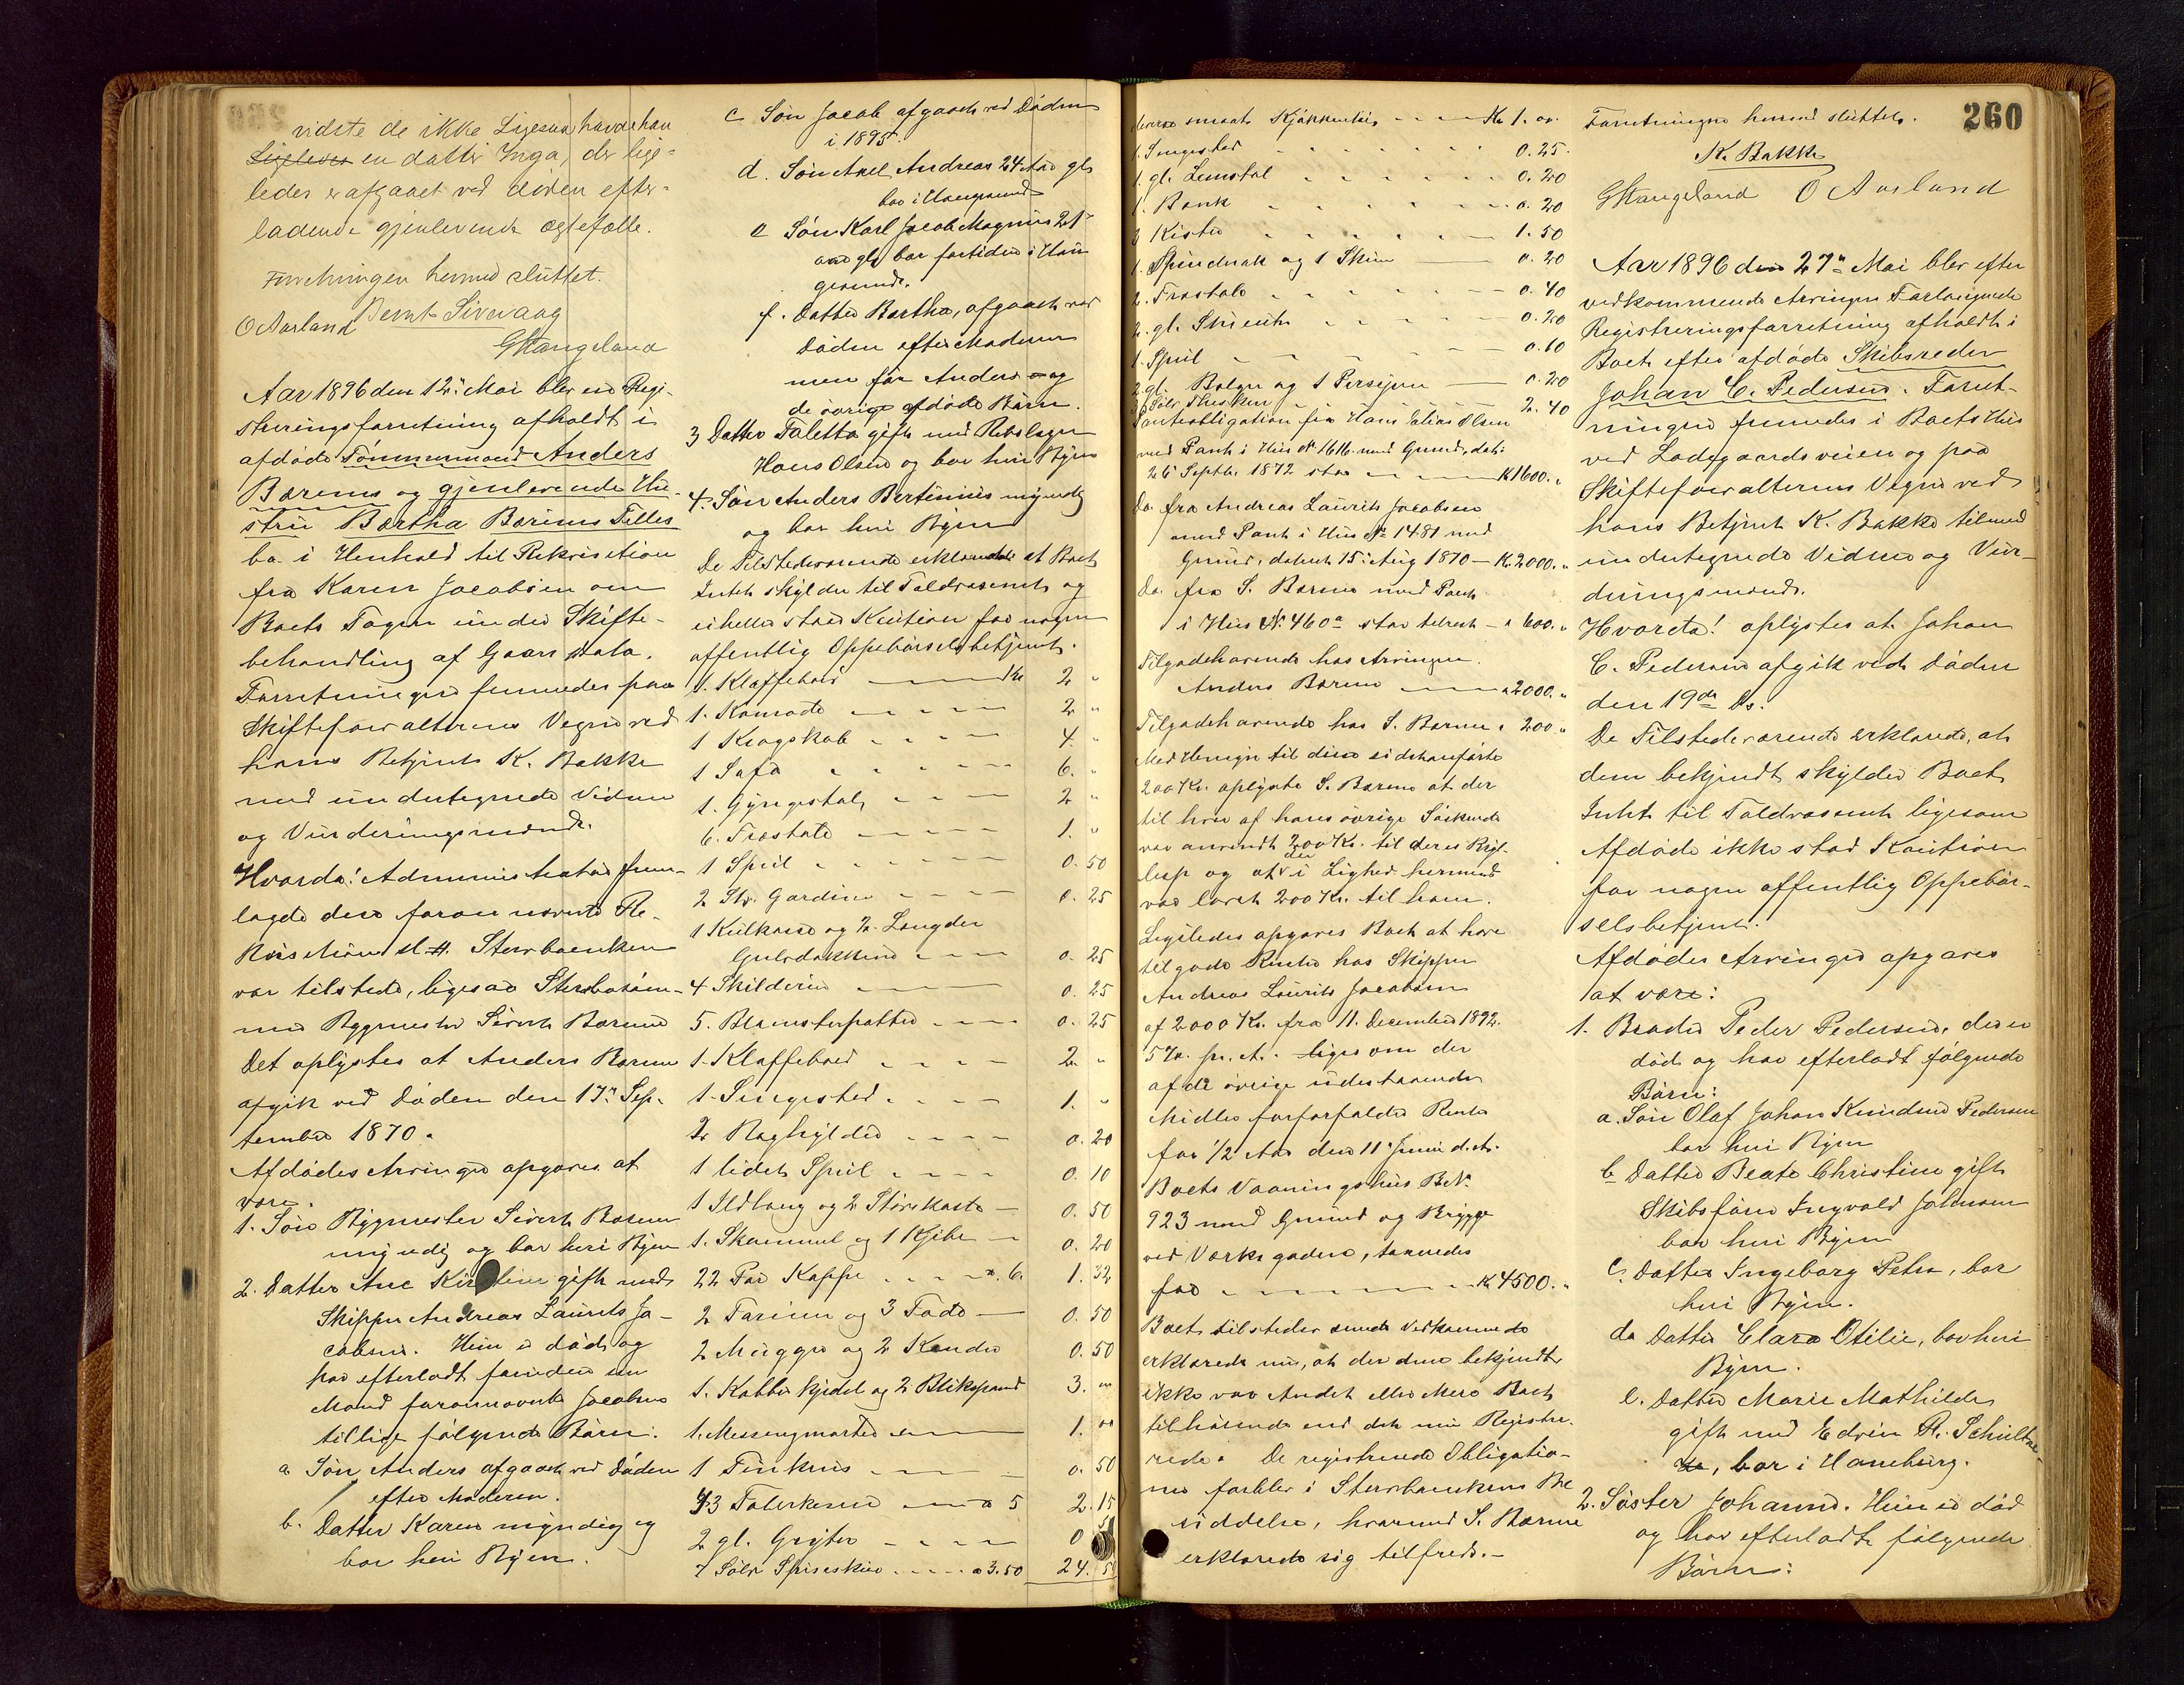 vidste de ikke Ligesaa havde han
Ligeledes en datter Inga, der lige-
ledes er afgaaet ved døden efter-
ladende gjenlevende ægtefælle.
Forretningen hermed sluttet.
Bernt Sirevaag
O Aarland
GStangeland
Aar 1896 den 12te Mai blev en Regi-
streringsforretning afholdt i
afdøde Tømmermand Anders
Børems og gjenlevende Hu-
stru Bertha Børems Fælles
bo i Henhold til Rekvisition
fra Karen Jacobsen om
Boets Tagen under Skifte-
behandling af Gaars Dato.
Forretningen fremmedes paa
Skifteforvalterens Vegne ved
hans Betjent K. Bakke
med undertegnede Vidner
og Vurderingsmænd.
Hvorda! Administrator frem-
lagde den foran nævnte Re-
kvisition d. H. Sterboenken
var tilstede, ligesaa Sterbosøn-
nen Bygmester Sivert Børem
Det oplystes at Anders Børem
afgik ved Døden den 17de Sep-
tember 1870.
Afdødes Arvinger opgaves at
være.
1. Søn Bygmester Sivert Børem
myndig og bor her i Byen
2. Datter Ane Kirstine gift med
Skipper Andreas Laurits Ja-
cobsen. Hun er død og
har efterladt foruden sin
Mand forannævnte Jacobsen
tillige følgende Børn:
a Søn Anders afgaaet ved Døden
efter Moderen.
b. Datter Karen myndig og
bor her i Byen.
c Søn Jacob afgaaet ved Døden
i 1895.
d. Søn Axel Andreas 24 Aar gl
bor i Haugesund
e Søn Karl Jacob Magnus 21
aar gl bor fortiden i Hau
gesund.
f. Datter Bertha, afgaaet ved
Døden efter Moderen
men før Anders og
de øvrige afdøde Børn.
3 Datter Taletta gift med Rebslager
Hans Olsen og bor her i Byen
4. Søn Anders Bertinius myndig
og bor her i Byen
De Tilstedeværende erklærede at Boet
Intet skylder til Toldvæsenet og
ei heller staar Kaution for nogen
offentlig Oppebørselsbetjent.
1. Klaffebord Kr 2 "
1. Komode 2 "
1 Krogskab 4. "
1 Sofa 6. "
1. Gyngestol 2 "
6. Træstole 1. "
1 Speil 0. 50
2 Str. Gardiner 0. 25
1 Kulkasse og 2 Længder
Gulvdækken 0. 25
4 Skilderier 0. 25
5. Blomsterpotter 0. 25
1. Klaffebord 2 "
1. Sengested 1. "
2 Boghylder 0. 20
1 lidet Speil 0. 10
1 Ildtang og 2 Støvekoste 0. 50
1. Skammel og 1 Kjibe 0. 20
22 Par Kopper a. 6. 1. 32
2 Teriner og 3 Fade 0. 50
2 Mugger og 2 Kander 0. 50
1. Kobberkjedel og 2 Blikspand 3. "
1. Messingmorter 1. "
1 Tinkrus 0. 50
43 Talerkener a 5 2. 15
2 gl. Gryter 0
7 Sølv Spiseskeer a 3.50 24. 5
diverse smaat Kjøkkentøi Kr 1. 00.
1. Sengested 0. 25.
1. gl. Lænstol 0. 20
1. Bænk 0. 20
3 Kister 1. 50
1. Spinderok og 1 Skrin 0. 20
2. Træstole 0. 40
2. gl. Skrinter 0. 20
1. Speil 0. 10
2 gl. Balger og 1 Persejern 0. 20
3 Sølv Theskeer 2. 40
Panteobligation fra Hans Elias Olsen
med Pant i Hus No 1616 med Grund, dat.
26 Septbr. 1872 stor K 1600. "
Do. fra Andreas Laurits Jacobsen
med Pant i Hus No 1481 med
Grund, dateret 15. Aug 1870 — K. 2000. "
Do. fra S. Børem med Pant
i Hus No 460a stor tilrest — " 600. "
Tilgodehavende hos Arvingen
Anders Børem " 2000. "
Tilgodehavende hos S. Børem " 200. "
Med Hensyn til disse sidstanførte
200 Kr. oplyste S. Børem at der
til hver af hans øvrige Søskende
var anvendt 200 Kr. til deres Bryl-
lup og at der i Lighed hermed
var lovet 200 Kr. til ham.
Ligeledes opgaves Boet at have
tilgode Renter hos Skipper
Andreas Laurits Jacobsen
af 2000 Kr. fra 11. December 1892.
5 % pr. A. ligesom der
af de øvrige udestaaende
Midler forfalder Rente
for 1/2 Aar den 11te Juni d. A.
Boets Vaaningshus B No
923 med Grund og Brygge
ved Værksgaden, taxeredes
for K 4500. "
Boets tilstedeværende Vedkommende
erklærede nu, at der dem bekjendt
ikke var Andet eller Mere Boet
tilhørende end det nu Registre-
rede. De registrerede Obligatio-
ner forblev i Sterboenkens Be
siddelse, hvormed S. Børem
erklærede sig tilfreds. —
260
Forretningen hermed sluttet.
K. Bakke
GStangeland O Aarland
Aar 1896 den 27de Mai blev efter
vedkommende Arvingers Forlangende
Registreringsforretning afholdt i
Boet efter afdøde Skibsreder
Johan C. Pedersen. Forret-
ningen fremmedes i Boets Hus
ved Ladegaardsveien og paa
Skifteforvalterens Vegne ved
hans Betjent K. Bakke tilmed
undertegnede Vidner og Vur-
deringsmænd.
Hvorda! oplystes at Johan
C. Pedersen afgik ved Døden
den 19de ds.
De Tilstedeværende erklærede, at
dem bekjendt skylder Boet
Intet til Toldvæsenet ligesom
Afdøde ikke stod Kaution
for nogen offentlig Oppebør-
selsbetjent.
Afdødes Arvinger opgaves
at være:
1. Broder Peder Pedersen, der er
død og har efterladt følgende
Børn:
a. Søn Olaf Johan Knudsen Pedersen
bor her i Byen
b Datter Beate Christine gift
Skibsfører Ingvald Johnsen
bor her i Byen
c. Datter Ingeborg Petra, bor
her i Byen.
d. Datter Clara Otilie, bor her i
Byen.
e. Datter Marie Mathilde
gift med Edvin R. Schultze
, bor i Hamburg.
2. Søster Johanne. Hun er død
og har efterladt følgende
Børn: